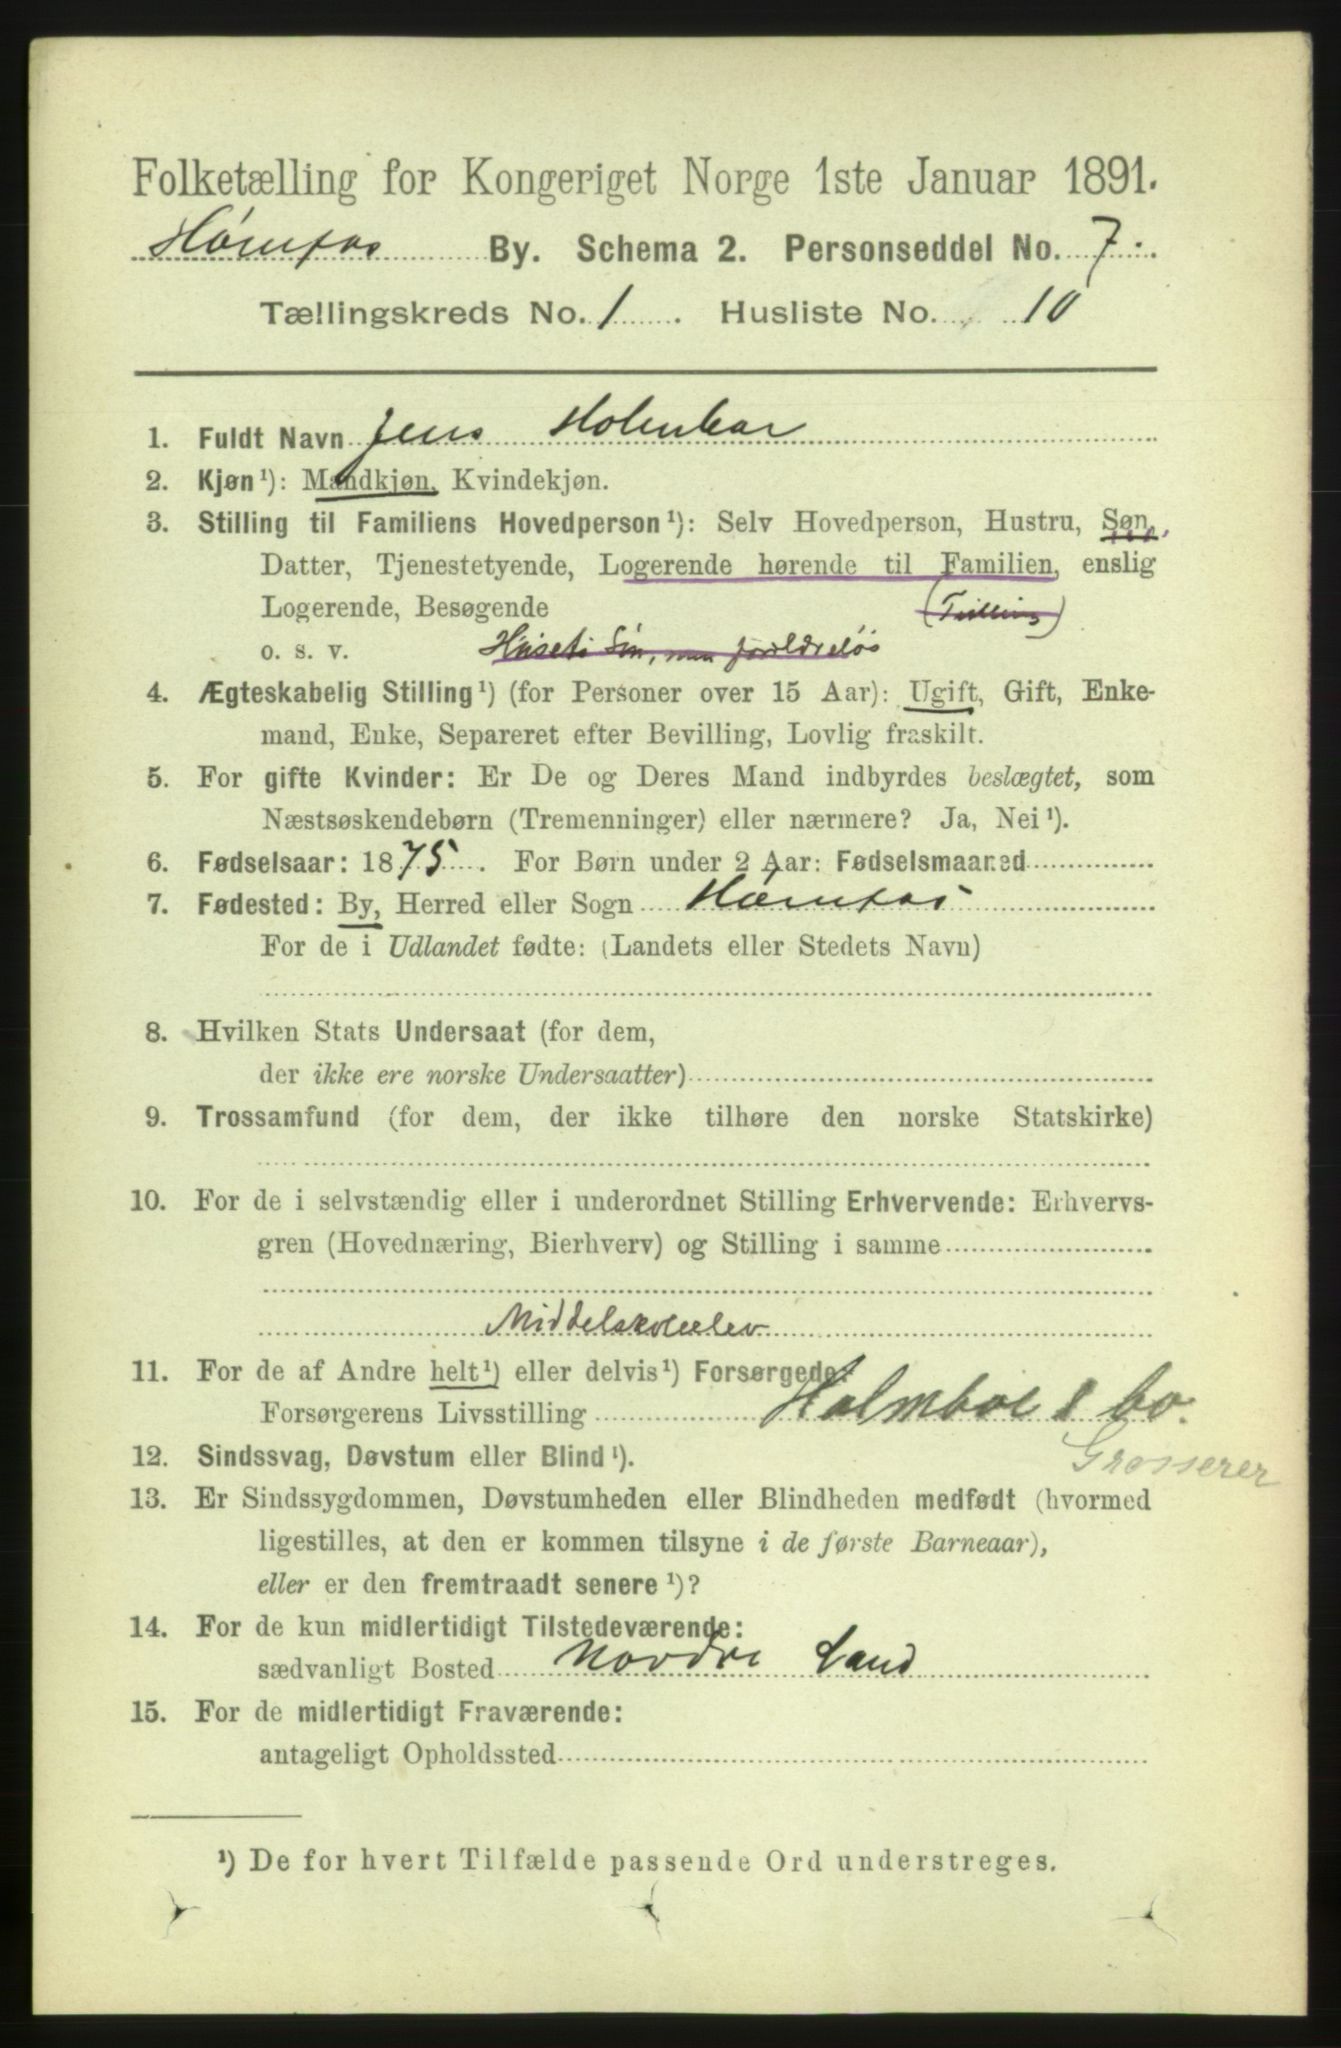 Folketælling for Kongeriget Norge 1ste Januar 1891.
Hønefos By. Schema 2. Personseddel No. 7.
Tællingskreds No. 1. Husliste No. 10
1. Fuldt Navn Jens Holmboe
2. Kjøn ¹): Mandkjøn, Kvindekjøn.
3. Stilling til Familiens Hovedperson ¹): Selv Hovedperson, Hustru, Søn,
Datter, Tjenestetyende, Logerende hørende til Familien, enslig
Logerende, Besøgende (Tvilling)
o. s. v. Husets Søn, men forældreløs
4. Ægteskabelig Stilling ¹) (for Personer over 15 Aar): Ugift, Gift, Enke-
mand, Enke, Separeret efter Bevilling, Lovlig fraskilt.
5. For gifte Kvinder: Er De og Deres Mand indbyrdes beslægtet, som
Næstsøskendebørn (Tremenninger) eller nærmere? Ja, Nei ¹).
6. Fødselsaar: 1875. For Børn under 2 Aar: Fødselsmaaned
7. Fødested: By, Herred eller Sogn Hønefos
For de i Udlandet fødte: (Landets eller Stedets Navn)
8. Hvilken Stats Undersaat (for dem,
der ikke ere norske Undersaatter)
9. Trossamfund (for dem, der ikke tilhøre den norske Statskirke)
10. For de i selvstændig eller i underordnet Stilling Erhvervende: Erhvervs-
gren (Hovednæring, Bierhverv) og Stilling i samme
Middelskoleelev
11. For de af Andre helt ¹) eller delvis ¹) Forsørgede:
Forsørgerens Livsstilling Holmboe & Co.
Grosserer
12. Sindssvag, Døvstum eller Blind ¹).
13. Er Sindssygdommen, Døvstumheden eller Blindheden medfødt (hvormed
ligestilles, at den er kommen tilsyne i de første Barneaar),
eller er den fremtraadt senere ¹)?
14. For de kun midlertidigt Tilstedeværende:
sædvanligt Bosted Nordre Land
15. For de midlertidigt Fraværende:
antageligt Opholdssted
¹) De for hvert Tilfælde passende Ord understreges.